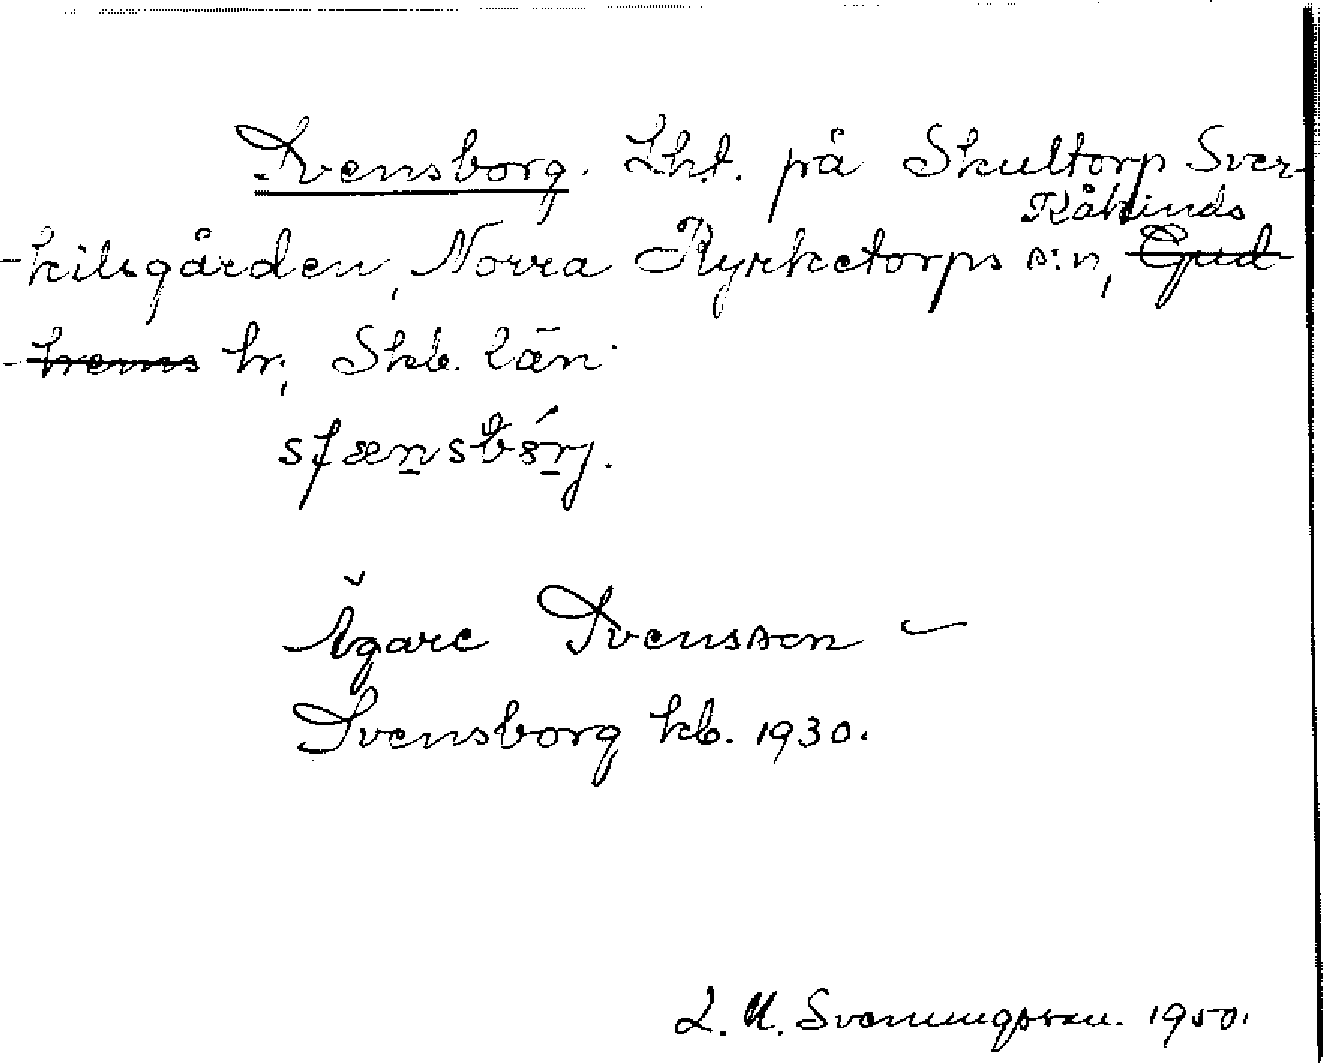 Svensborg. Lht. på Skultorp Sver-
-kilsgården, Norra Kyrketorps s:n, Kåkinds ~~Gud~~
~~-hems~~ hr, Skb. län.
Ägare Svensson
Svensborg kb. 1930.
Svenungsson. 1950.